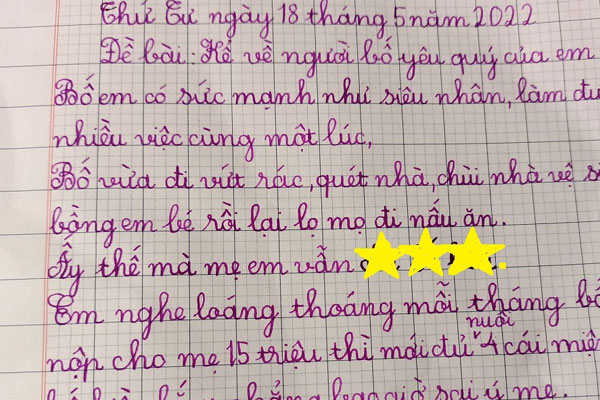 Thứ Tư ngày 18 tháng 5 năm 2022
Đề bài: Kể về người bố yêu quý của em
Bố em có sức mạnh như siêu nhân, làm đư
nhiều việc cùng một lúc,
Bố vừa đi vứt rác, quét nhà, chùi nhà vệ s
bồng em bé rồi lại lọ mọ đi nấu ăn.
Ấy thế mà mẹ em vẫn
Em nghe loáng thoáng mỗi tháng bố
nuôi
nộp cho mẹ 15 triệu thì mới đủ 4 cái miện
bao giờ sai ý mẹ.